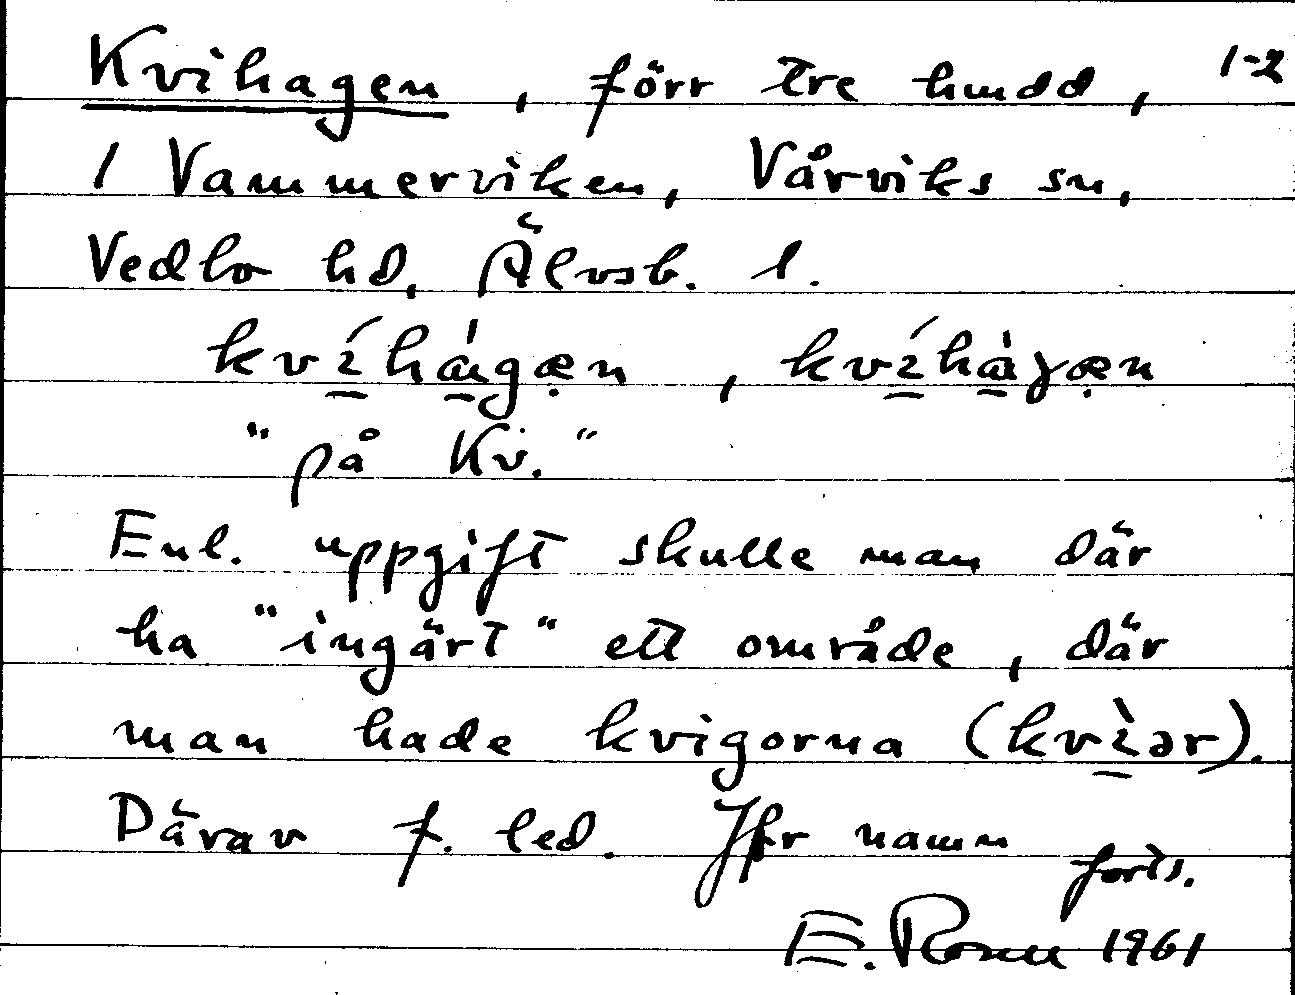 Kvihagen, förr tre hmdd, 1-2
1 Vammerviken, Vårviks sn,
Vedbo hd, Älvsb. l.
kví̱há̱gæ̣n, kví̱hà̱γæ̣n
"på Kv."
Enl. uppgift skulle man där
ha "ingärt" ett område, där
man hade kvigorna (kvì̱ər).
Därav f. led. Jfr namn
forts.
E. 1961